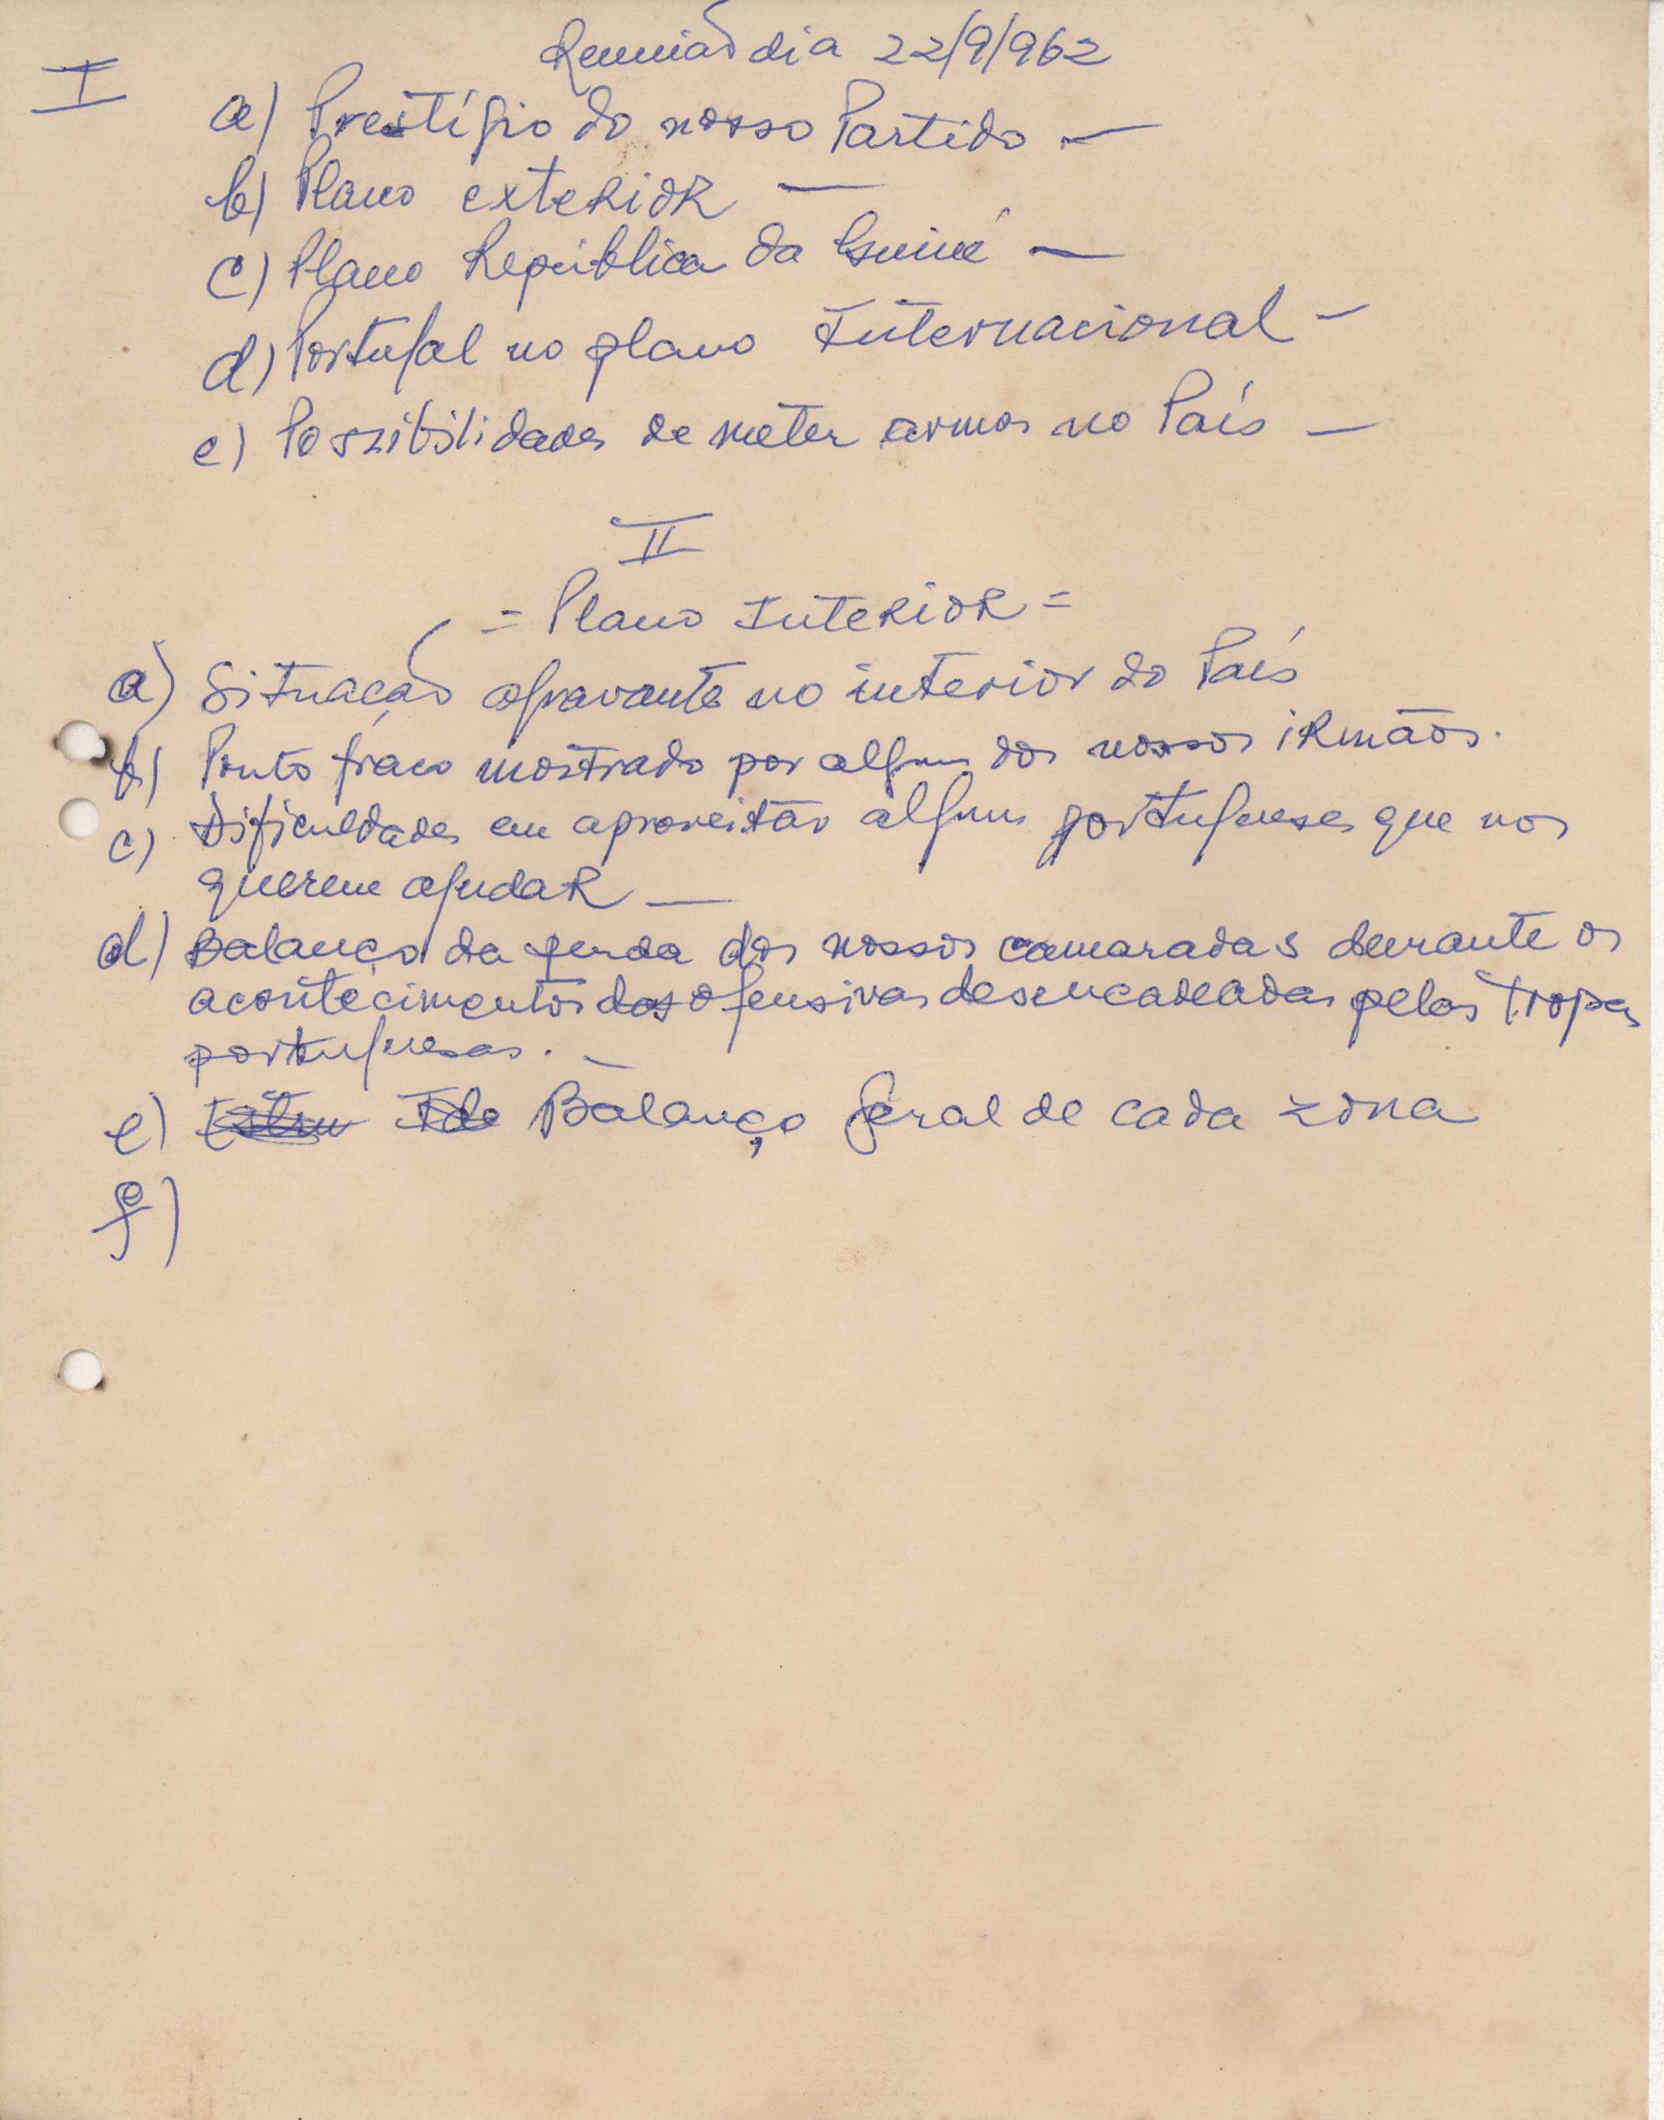 Reunião dia 22/9/962
I
a) Prestígio do nosso Partido —
b) Plano exterior —
c) Plano República da Guiné —
d) Portugal no plano Internacional –
e) Possibilidades de meter armas no País —
II
= Plano Interior =
a) Situação agravante no interior do País
b) Ponto fraco mostrado por alguns dos nossos irmãos.
c) Dificuldades em aproveitar alguns portugueses que nos
querem ajudar —
d) Balanço da perda dos nossos camaradas durante os
acontecimentos das ofensivas desencadeadas pelas tropas
portuguesas. —
e) Balanço geral de cada zona
f)